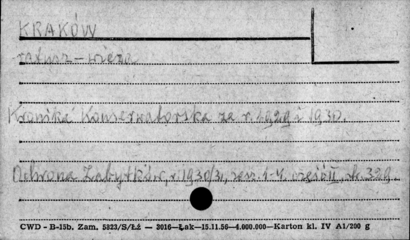 KRAKÓW
ratusz - wieża
Kronika Konserwatorska za r. 1929 i 1930.
Ochrona Zabytków, r. 1930/31, zesz. 1-4, część II, st. 329.
CWD - B-15b. Zam. 5323/S/Łż — 3016—Łak—15.11.56—4.000.000—Karton kl. IV A1/200 g